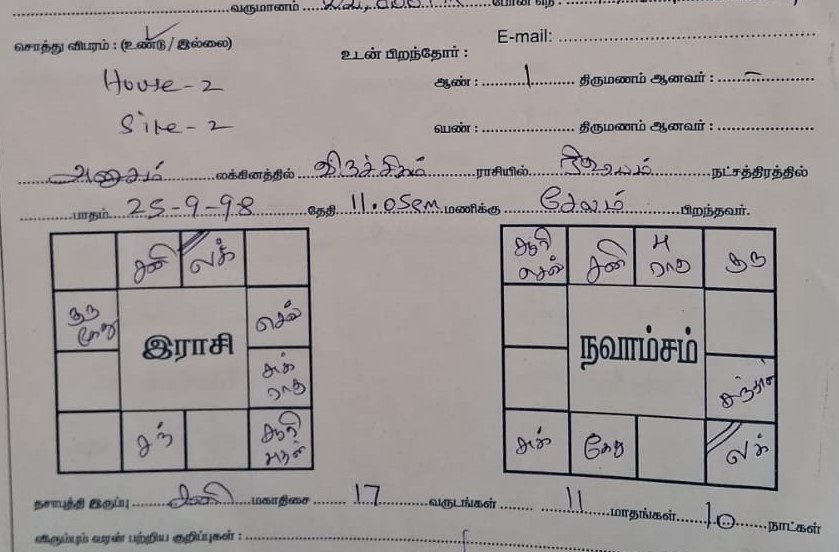 வருமானம்
சொத்து விபரம் : (உண்டு / இல்லை)
E-mail:
உடன் பிறந்தோர் :
House - 2
ஆண் : 1 திருமணம் ஆனவர் : –
Site - 2
பெண் : திருமணம் ஆனவர் :
அனுசம் லக்கினத்தில் விருச்சிகம் ராசியில் ரிஷபம் நட்சத்திரத்தில்
பாதம் 25-9-98 தேதி 11.05 மணிக்கு சேலம் பிறந்தவர்.
சனி லக்
குரு கேது
செவ்
இராசி
சுக் ராகு
சந்
சூரி புதன்
சூரி செவ் சனி பு ராகு குரு
நவாம்சம்
சந்திரன்
சுக் கேது லக்
தசாபுத்தி இருப்பு சனி மகாதிசை 17 வருடங்கள் 11 மாதங்கள் 10 நாட்கள்
விரும்பும் வரன் பற்றிய குறிப்புகள் :